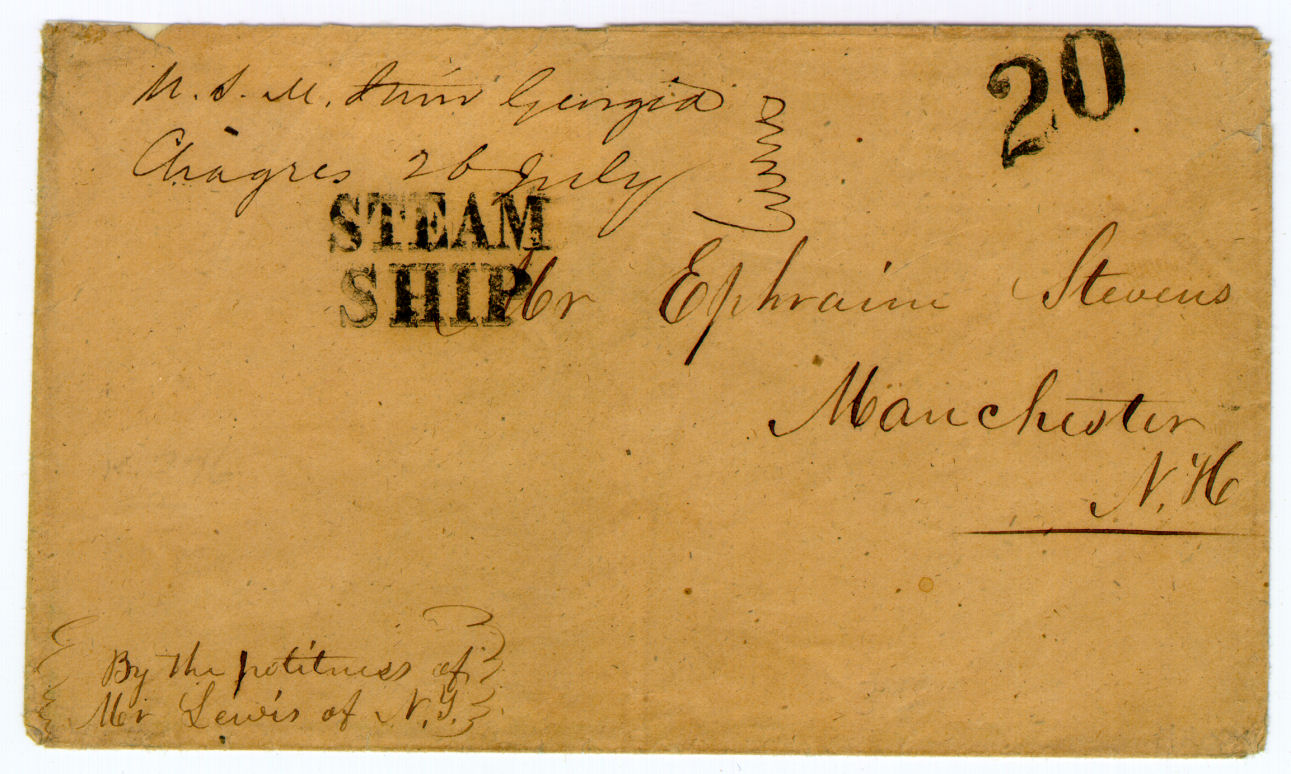 U. S. M. Stmr Georgia
Chagres 26 July
20
STEAM
SHIP
Mr Ephraim Stevens
Manchester
N.H
By the politness of
Mr Lewis of N.Y.